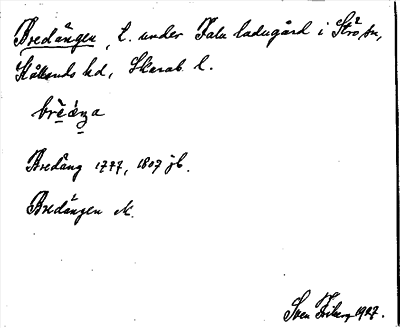 Bredängen, t. under Fale ladugård i Strö sn,
Kållands hd, Skarab. l.
brèäŋa
Bredäng 1777, 1807 jb.
Bredängen M.
Sven Friberg 1927.